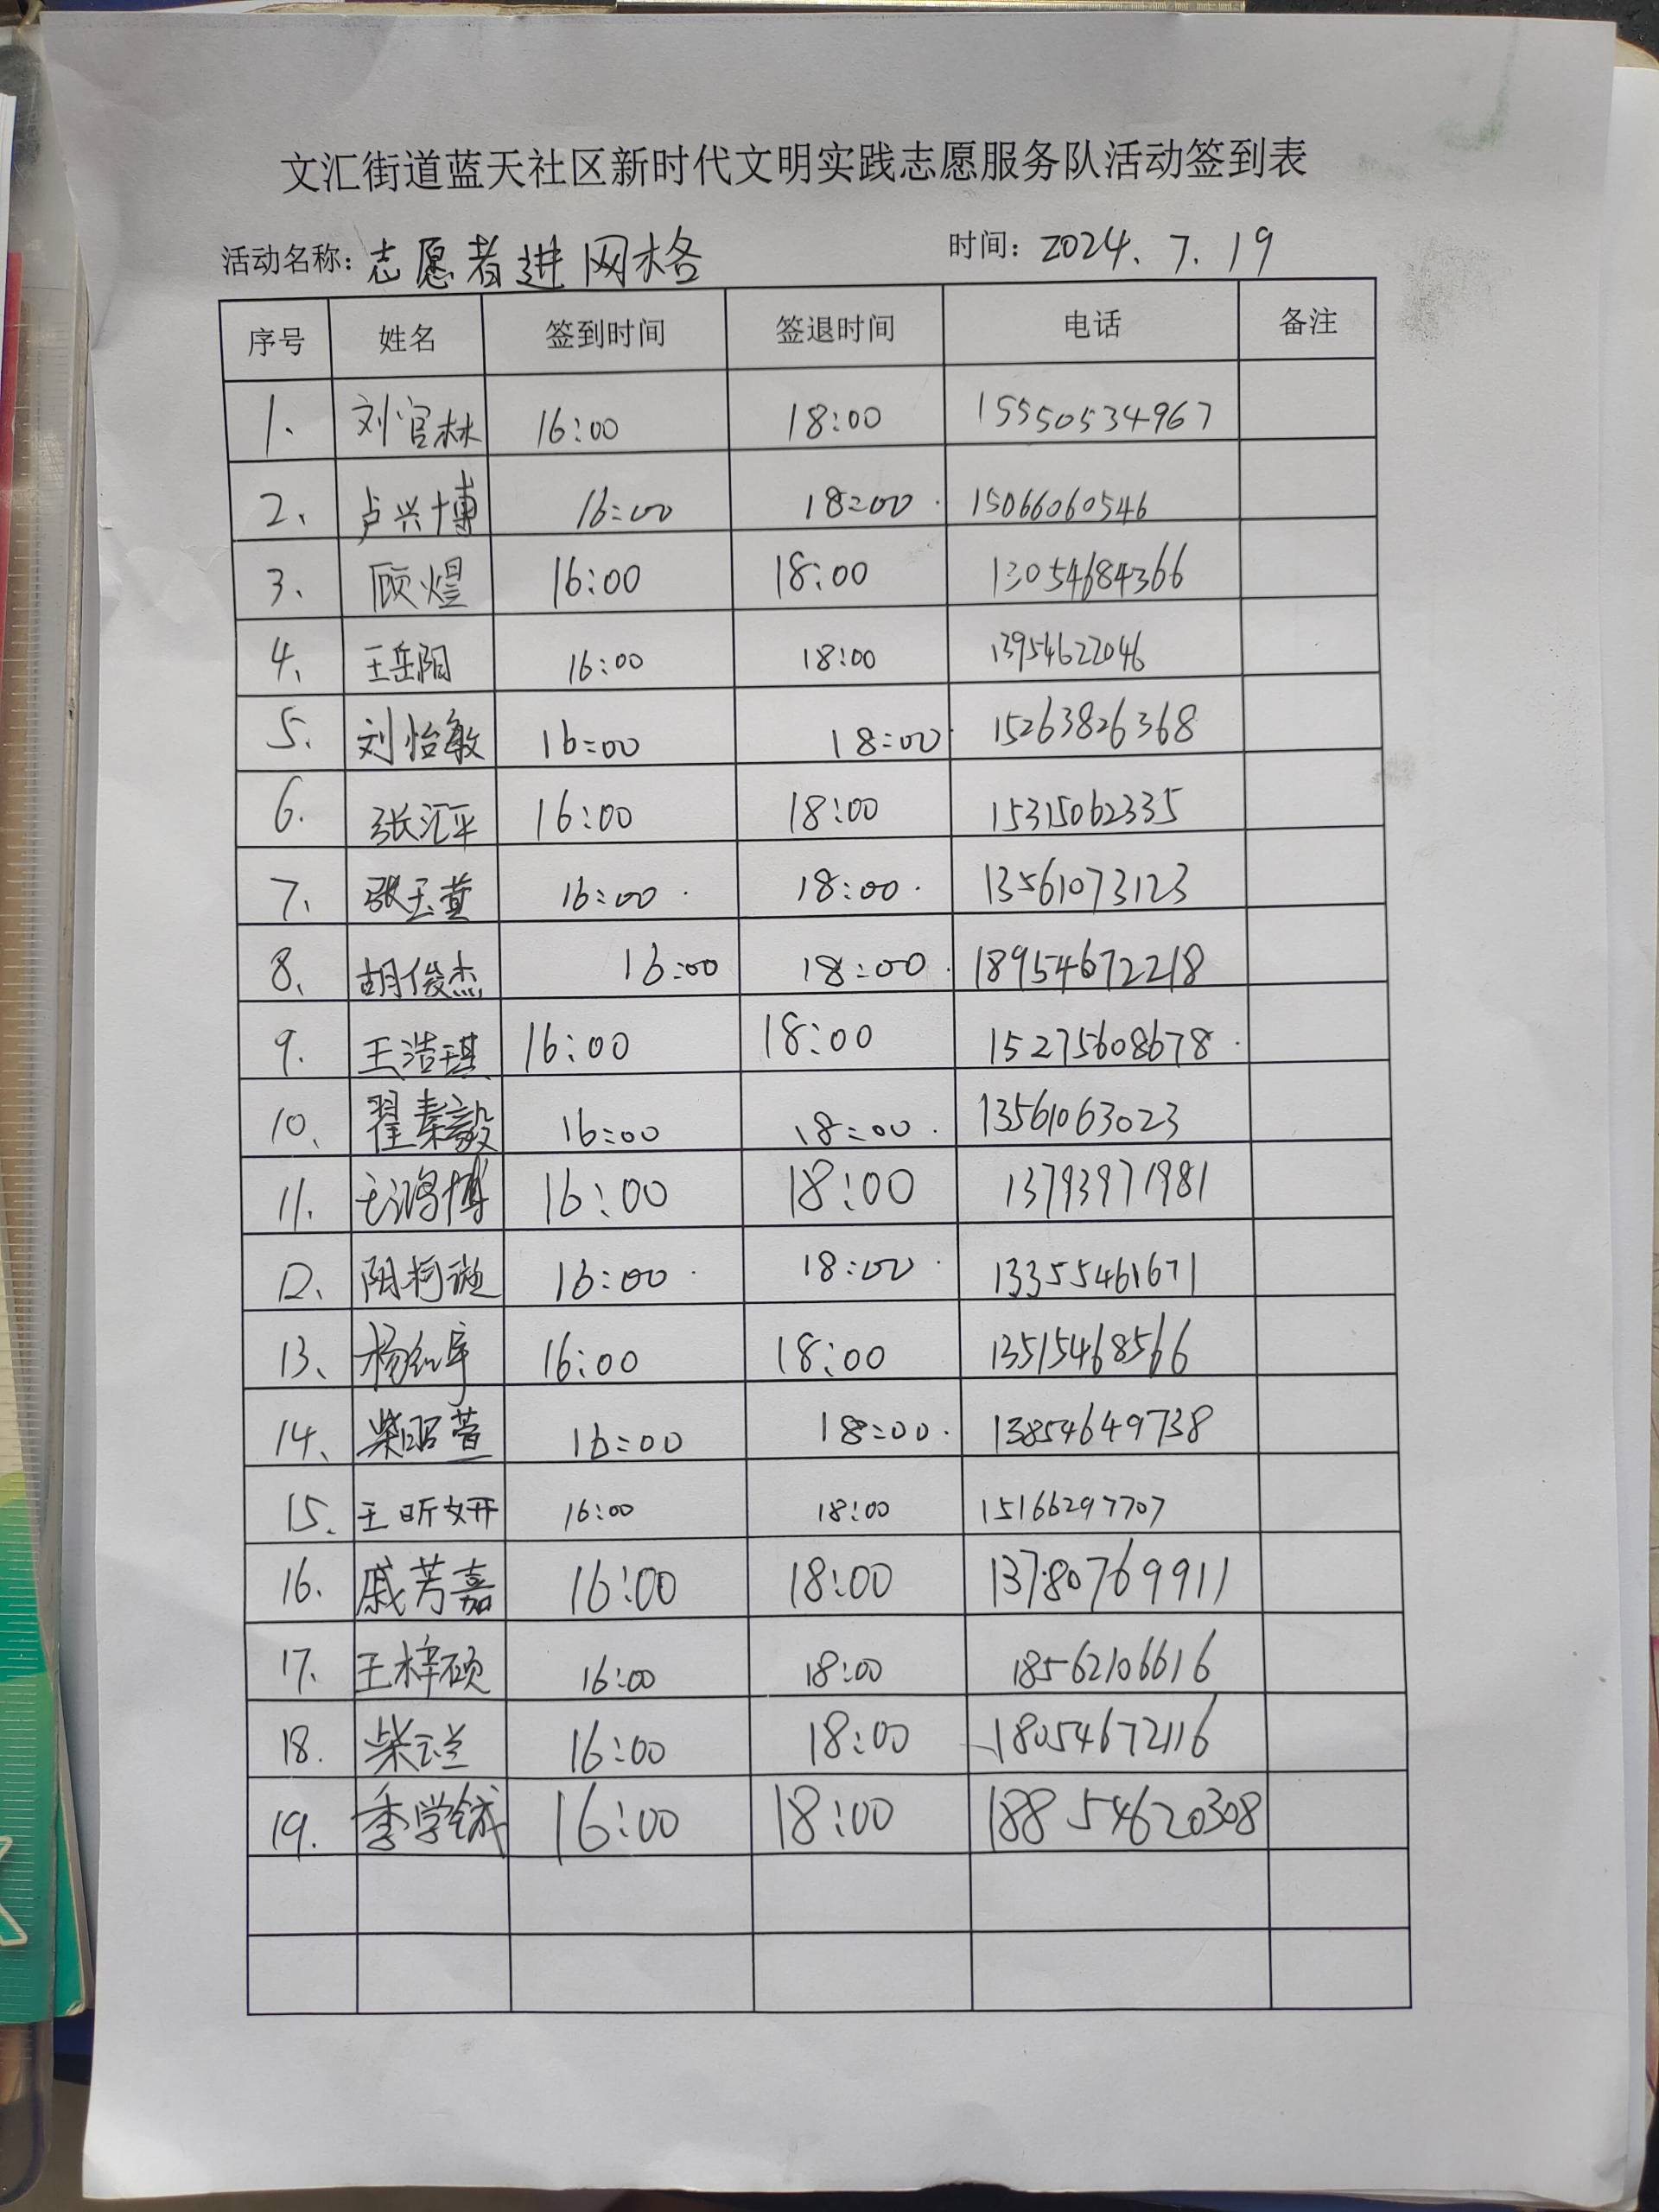 文汇街道蓝天社区新时代文明实践志愿服务队活动签到表
活动名称：志愿者进网格 时间：2024.7.19
序号 姓名 签到时间 签退时间 电话 备注
1、 刘官林 16:00 18:00 15550534967
2、 卢兴博 16:00 18:00 15066060546
3、 顾煜 16:00 18:00 13054684366
4、 王岳阳 16:00 18:00 13954622046
5、 刘怡敏 16:00 18:00 15263826368
6. 张汇平 16:00 18:00 15315062335
7、 张玉萱 16:00 18:00 13561073123
8、 胡俊杰 16:00 18:00 18954672218
9. 王浩琪 16:00 18:00 15275608678
10、 翟秦毅 16:00 18:00 13561063023
11. 王鸿博 16:00 18:00 13793971981
12、 阳柯 16:00 18:00 13355461671
13、 杨 16:00 18:00 13515468566
14、 柴昭萱 16:00 18:00 13854649738
15. 王昕妍 16:00 18:00 15166297707
16. 戚芳嘉 16:00 18:00 13780769911
17. 王梓硕 16:00 18:00 18562106616
18. 柴云兰 16:00 18:00 18054672116
19. 季学铖 16:00 18:00 18854620308